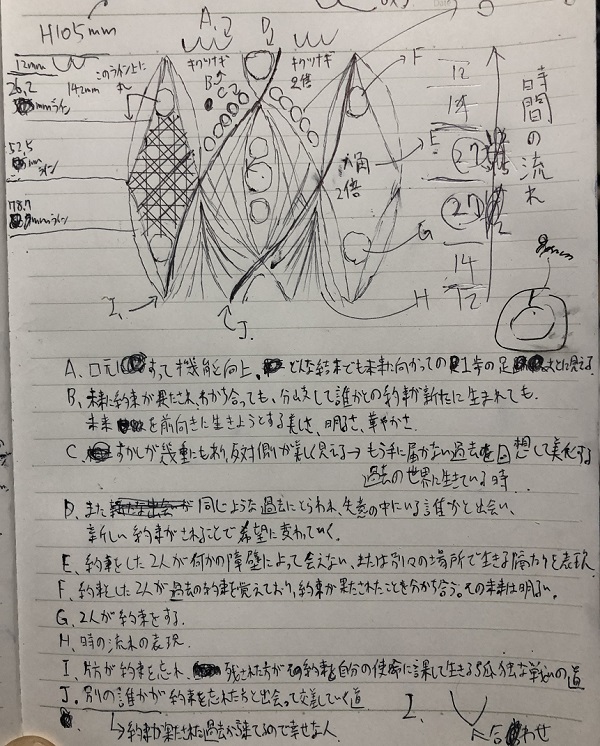 H105mm
A.
D
F
12mm
142mm
このライン上に
26.2
mmライン
キクツナギ
B
C
キクツナギ
2倍
52.5
mm
ライン
78.7
mmライン
E
六角
2倍
G
H
I.
J.
12
14
27
27
14
12
時間の流れ
8mm
A. 口元 すって機能と向上、どんな結末でも未来に向かっての1歩の足 に見える
B. 未来に約束が果たされ、わかち合っても、分岐して誰かとの約束が新たに生まれても、
未来 を前向きに生きようとする美しさ、明るさ、華やかさ。
C. すかしが幾重にも 、反対側が美しく見える→もう手に届かない過去を回想して美化する
過去の世界に生きている時
D. また 同じような過去にとらわれ、失意の中にいる誰かと出会い、
新しい約束がされることで希望に変わっていく。
E. 約束をした2人が何かの障壁によって会えない、または別々の場所で生きる隔たりを表現
F. 約束した2人が過去の約束を覚えており、約束が果たされたことを分かち合う。その未来は明るい。
G. 2人が約束をする。
H. 時の流れの表現
I. 片方が約束を忘れ、 残された方が 約束を自分の使命に課して生きる孤独な戦いの道
J. 別の誰かが約束を忘れた方と出会って交差していく道
↳約束が果たされた過去から来てるので幸せな人。
I. 合わせ